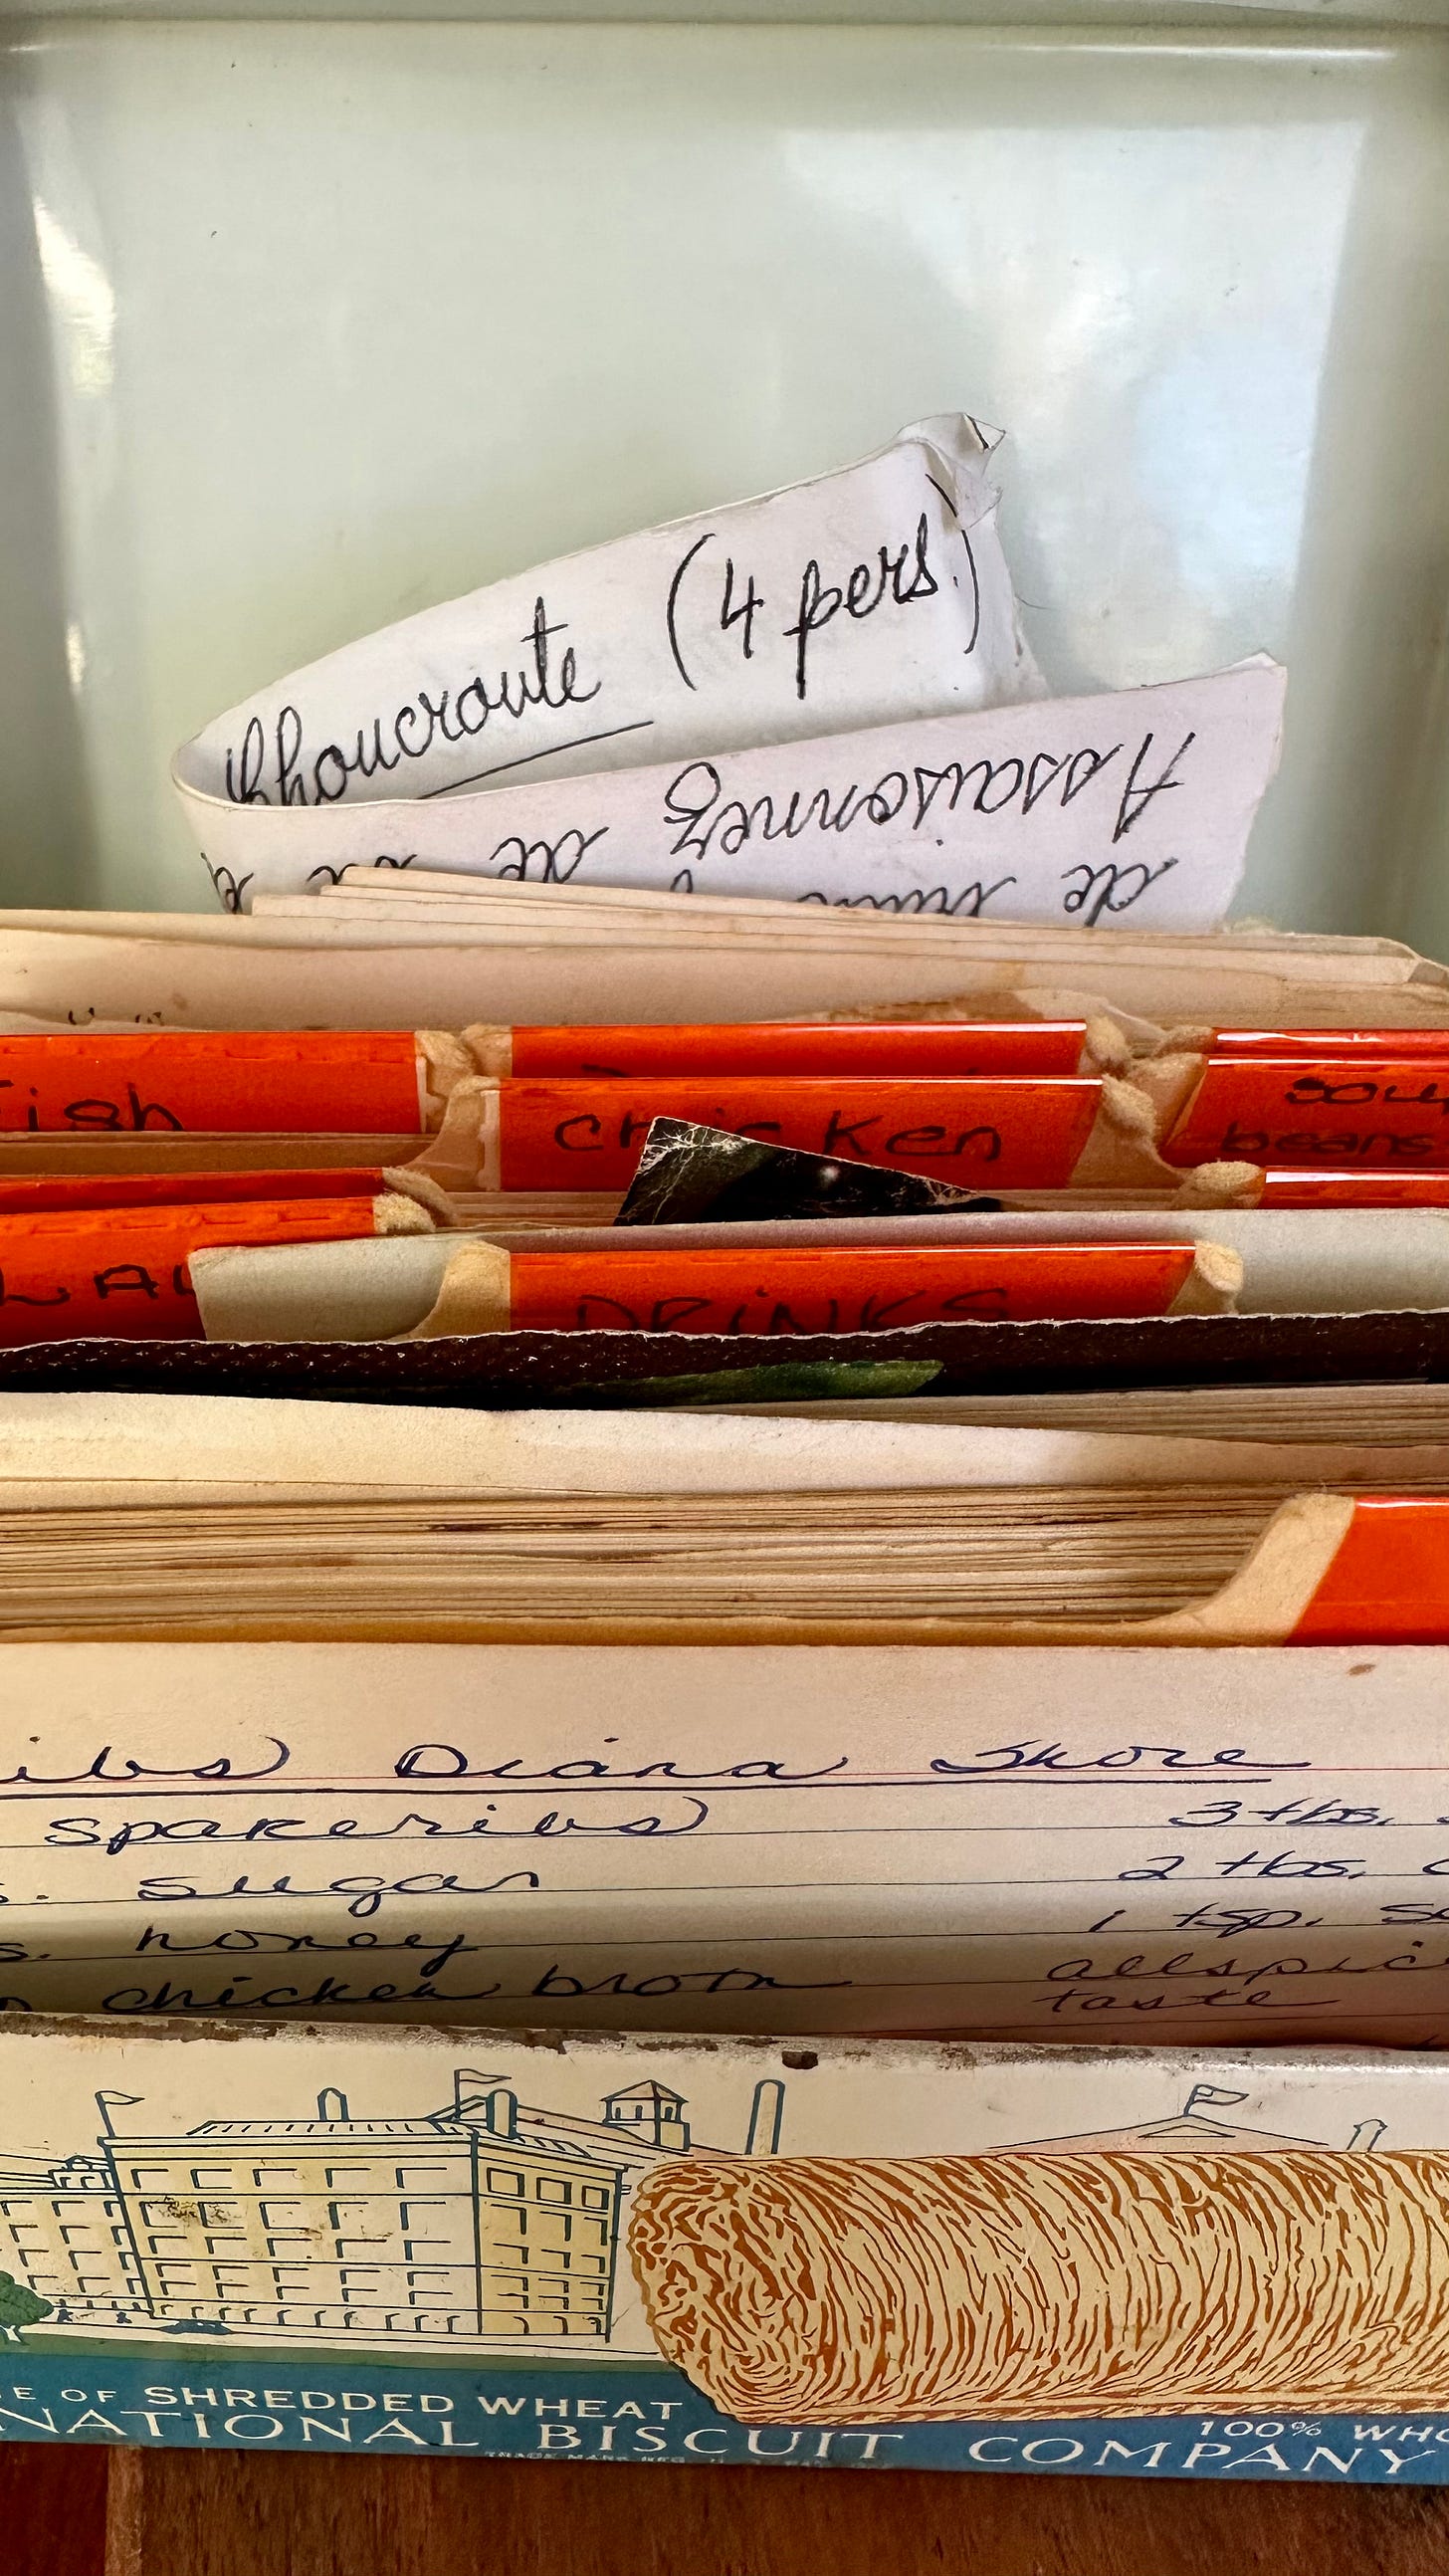 Choucroute (4 pers.)
Assaisonnez
de de
Fish
Chicken
soup
beans
DRINKS
ibs Diana Shore
spareribs 3 tbs.
s. sugar 2 tbs.
s. honey 1 tsp.
chicken broth allspice
taste
E OF SHREDDED WHEAT
100% WHO
NATIONAL BISCUIT COMPANY